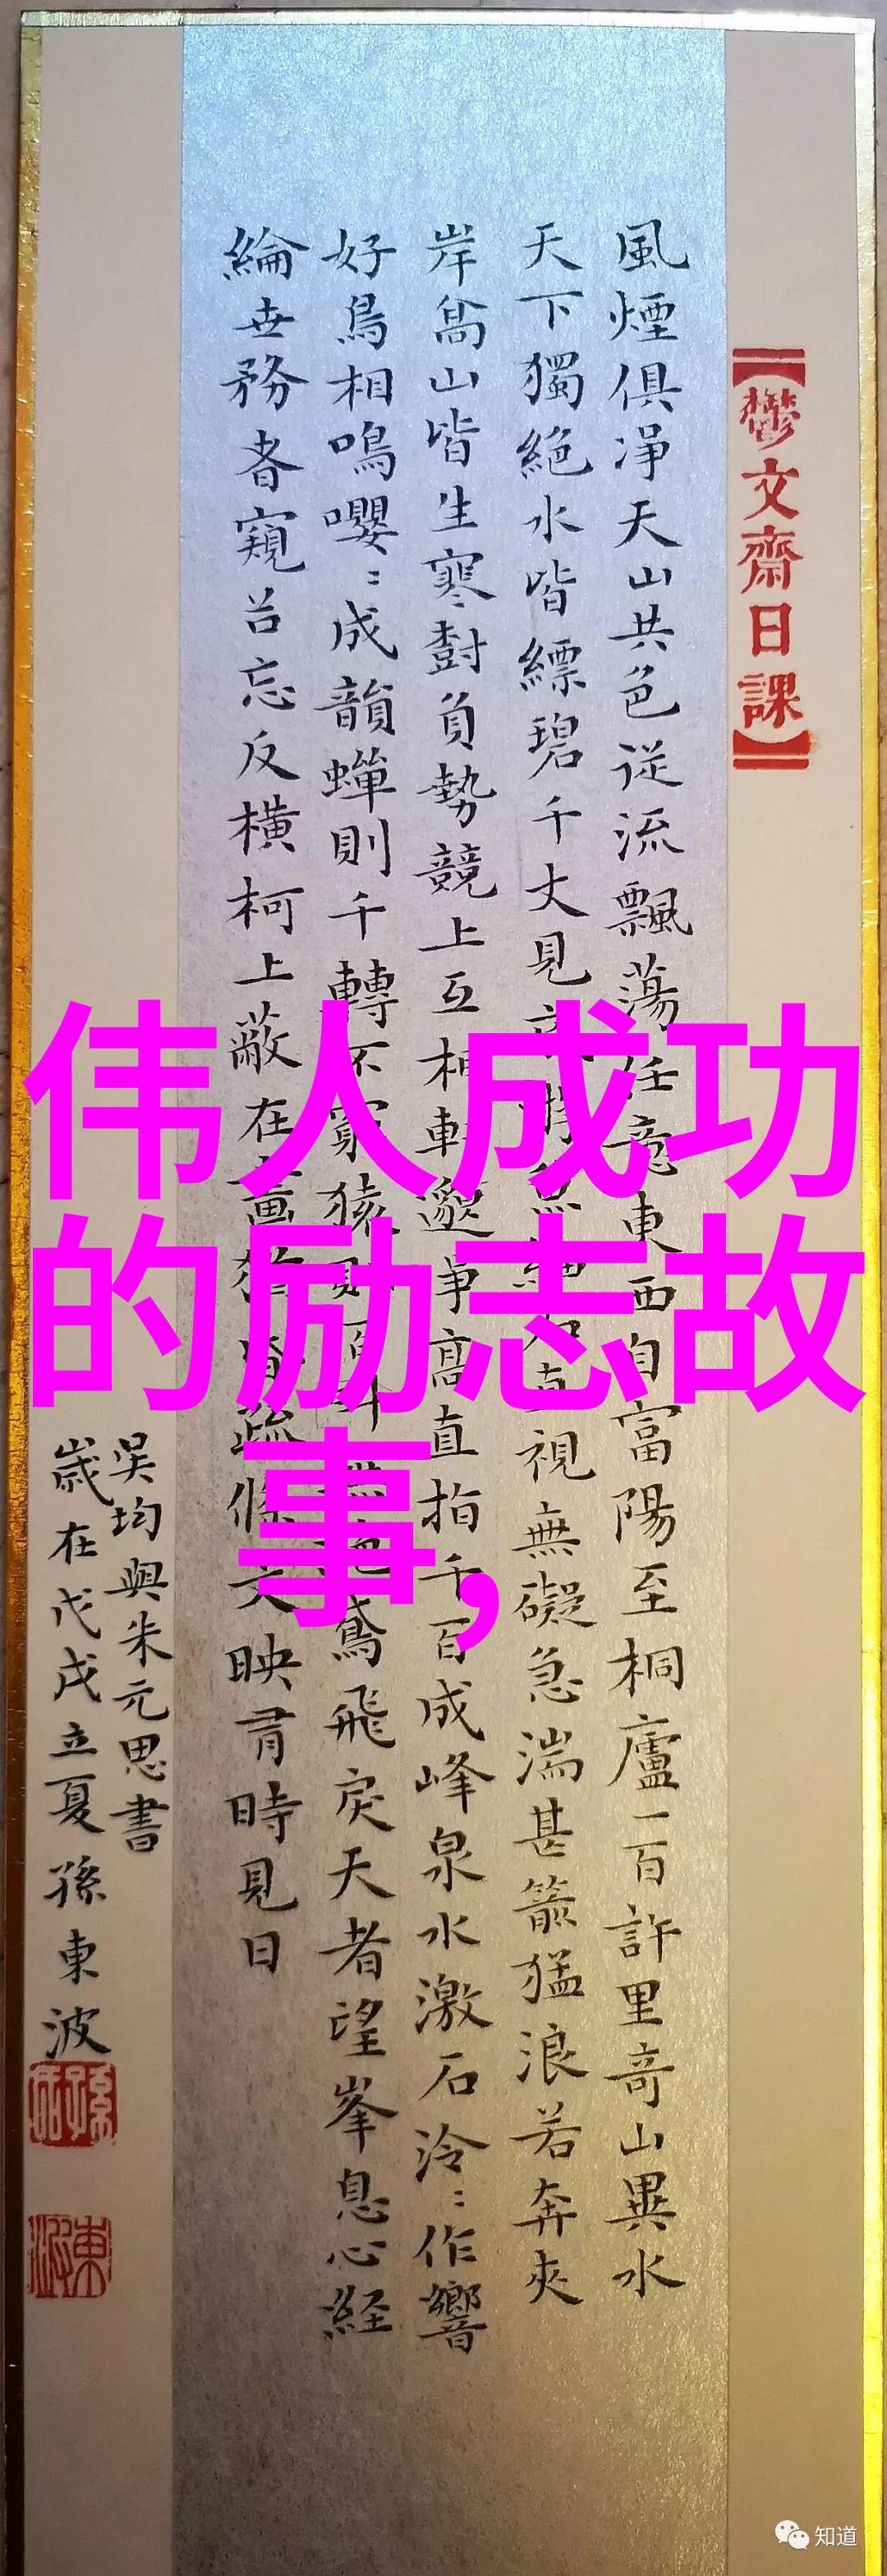 【鬱文齋日課】
風煙俱淨天山共色從流飄蕩任意東西自富陽至桐廬一百許里奇山異水
天下獨絕水皆縹碧千丈見魚細石直視無礙急湍甚箭猛浪若奔夾
岸高山皆生寒樹負勢競上互相軒邈爭高直指千百成峰泉水激石泠〻作響
好鳥相鳴嚶〻成韻蟬則千轉不窮猿則百鳶飛戾天者望峯息心経
綸世務者窺谷忘反橫柯上蔽在晝猶疏條交映有時見日
吳均與朱元思書
歲在戊戌立夏孫東波
伟人成功
的励志故
事,
知道